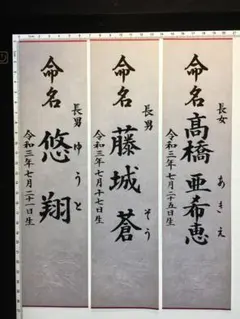 命名
長女
高橋 亜希恵
あきえ
令和三年七月二十五日生
命名
長男
藤城 蒼
そう
令和三年七月十七日生
命名
長男
悠翔
ゆうと
令和三年七月二十一日生